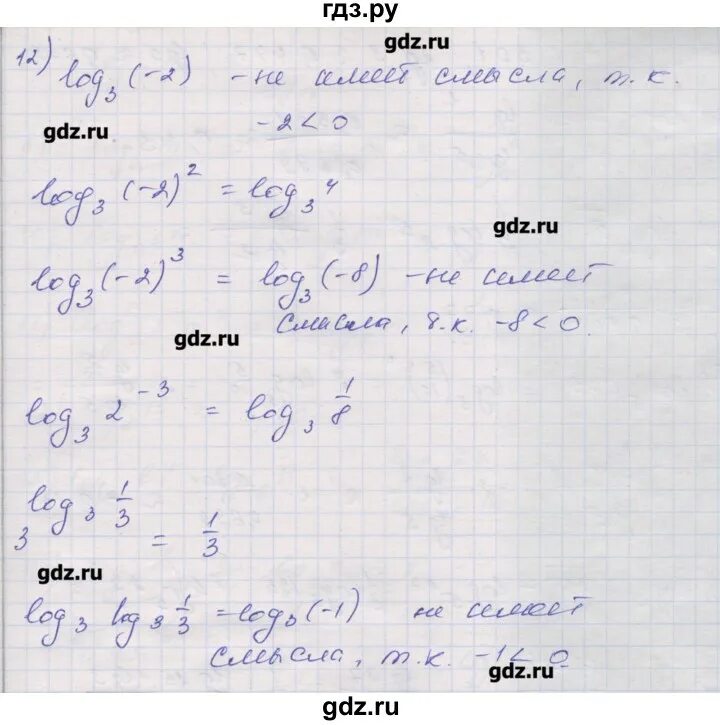 гдз.ру
gdz.ru
12) log₃(-2) - не имеет смысла, т.к.
-2 < 0
gdz.ru
log₃(-2)² = log₃4
gdz.ru
log₃(-2)³ = log₃(-8) - не имеет
смысла, т.к. -8 < 0.
gdz.ru
log₃2⁻³ = log₃ 1/8
3^(log₃ 1/3) = 1/3
gdz.ru
log₃ log₃ 1/3 = log₃(-1) не имеет
смысла, т.к. -1 < 0.
gdz.ru
gdz.ru